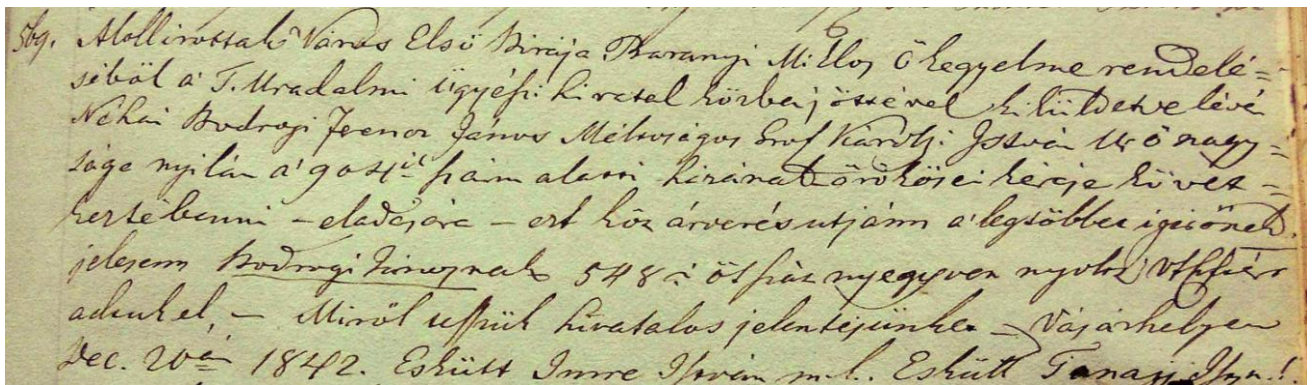 569. Alollirottak Város Első Birája Baranyi Miklos Ő kegyelme rendelé=
séből a' T. Uradalmi ügyészi hivatal közbejöttével kiküldetve lévén
Néhai Bodrogi Ferencz János Méltoságos Grof Károlyi István Ur ő nagy=
sága nyilán a' 904ik szám alatti házának örökösei kérése követ=
keztébenni – eladására – ezt köz árverés utjánn a' legtöbbet igérőnek,
jelesenn Bodrogi Jánosnak 548 : ötszáz negyven nyolcz vftért
adtuk el, – Miről tesszük hivatalos jelentésünket – Vásárhelyen
Dec. 20án 1842. Eskütt Imre István m.k. Eskütt